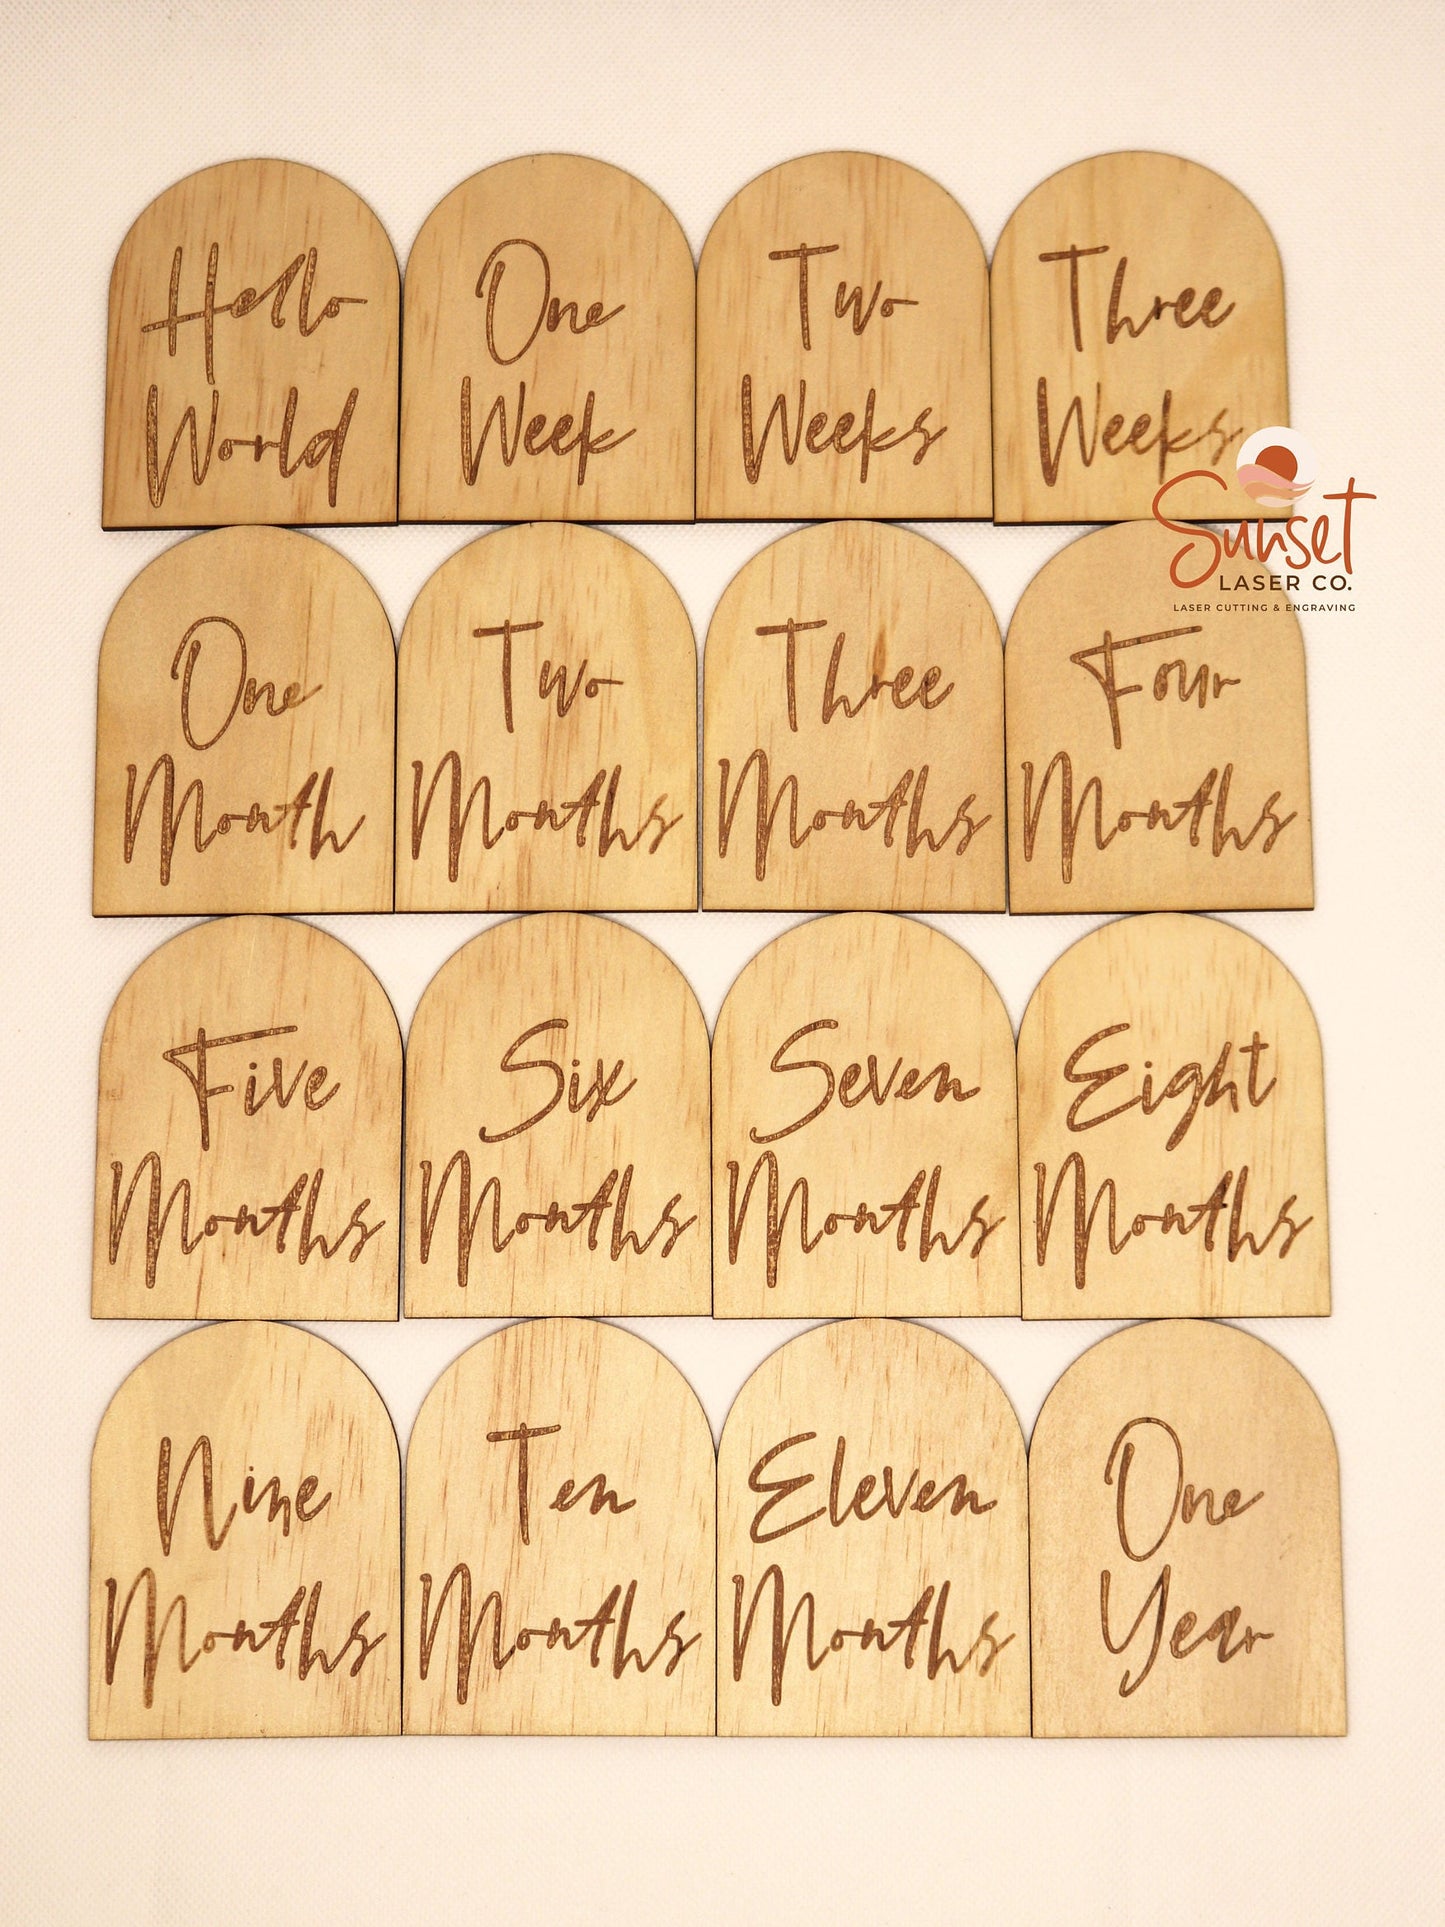 Hello
World
One
Week
Two
Weeks
Three
Weeks
Sunset
LASER CO.
LASER CUTTING & ENGRAVING
One
Month
Two
Months
Three
Months
Four
Months
Five
Months
Six
Months
Seven
Months
Eight
Months
Nine
Months
Ten
Months
Eleven
Months
One
Year